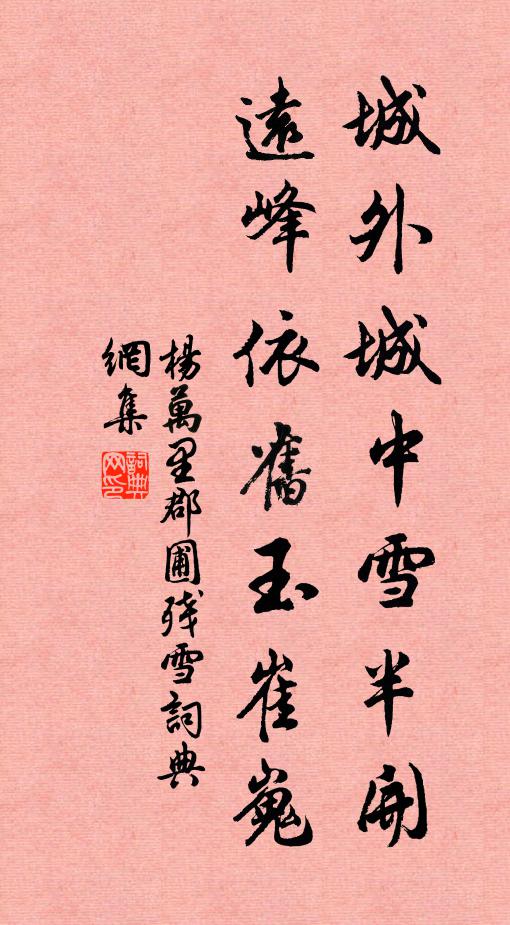 城外城中雪半開
遠峰依舊玉崔嵬
楊萬里郡圃殘雪詞典
網集
詞典網印